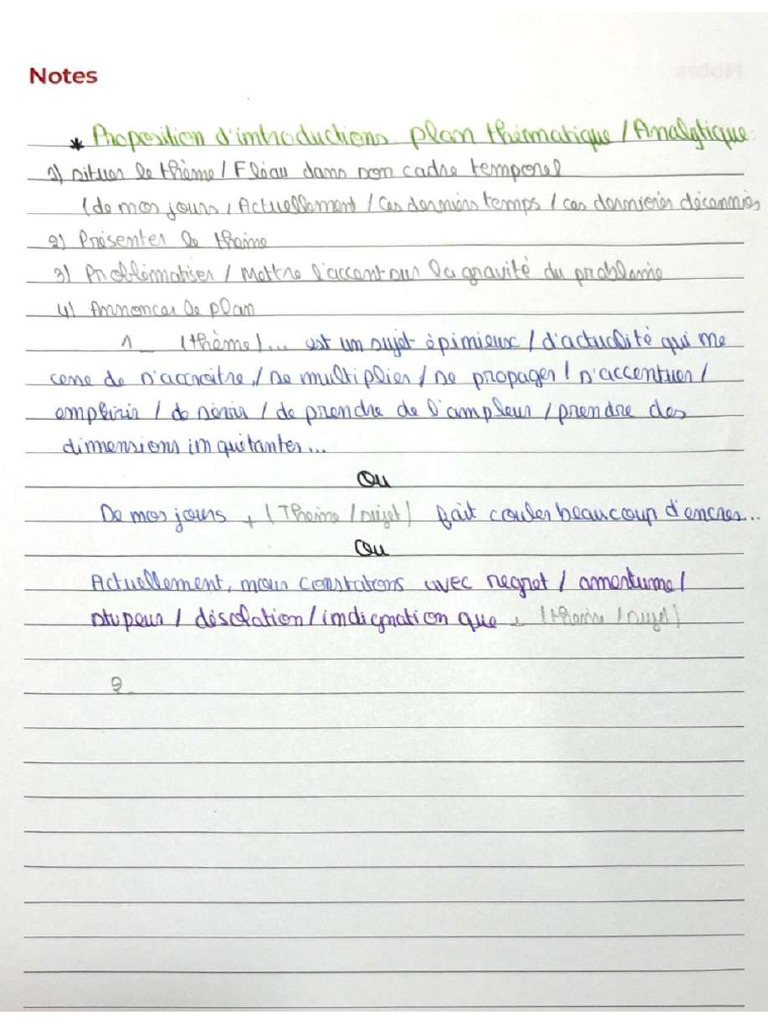 Notes
* Proposition d'introductions plan thématique / Analytique :
1) situer le thème / Fléau dans son cadre temporel
(de nos jours, Actuellement / Ces derniers temps / ces dernières décennies
2) Présenter le thème
3) Problématiser / Mettre l'accent sur la gravité du problème
4) Annoncer le plan
1_ (thème)... est un sujet épineux / d'actualité qui ne
cesse de s'accroître / se multiplier / se propager / s'accentuer /
de sévir / de prendre de l'ampleur / prendre des
dimensions inquiétantes...
Ou
De nos jours + (Thème / sujet) fait couler beaucoup d'encres...
Ou
Actuellement, nous constatons avec regret / amertume /
stupeur / désolation / indignation que + (thème / sujet)
2_